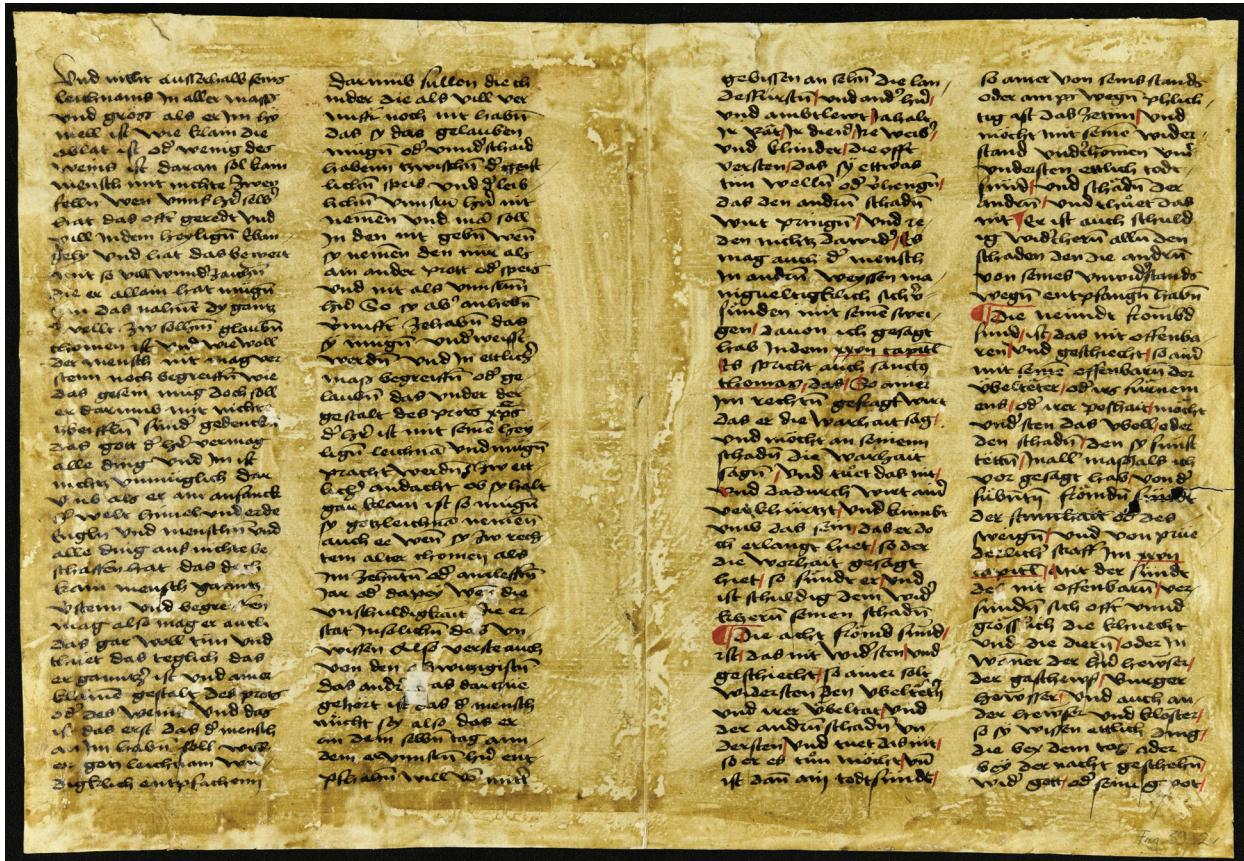 Vnd nicht ausserhalb seins
leichnams In aller mass
vnd gröss als er Im hy
mell ist wie klain die
oblat ist od' wenig des
weins ist daran sol kain
mensch mit nichte zwey
felln wen vnns h'r selb'
hat das offt geredt vnd
will Indem heyligñ Ewan
gely vnd hat das bewert
mit so vill wund' zaichñ
die er allain hat mügñ
tun das nalnut dy gantz
welt zw sollhm glaubñ
chomen ist vnd wie woll
der mensch nit mag ver
stenn noch begreiffñ wie
das gesein müg doch soll
er darumb mit nichte
zweifflñ sund' gedenckñ
das gott d' h'r vermag
alle ding vnd Im ist
nichtz vnmüglich dar
vmb als er am anfanck
d' welt himel vnd erde
Engln vnd menschñ vnd
alle ding aus nichte be
schaffen hat das doch
kain mensch gantz
v'stenn vnd begreiffen
mag also mag er auch
das gar woll tun vnd
thuet das teglich das
er gantz ist vnd ainer
klaine gestalt des prots
od' des weins vnd das
ist das erst das d' mensch
an Im habñ soll will
er gotz leichnam wir
digklich entpfachenn
Darumb sullen die ch
inder die als vill ver
nufft noch nit habñ
das sy das gelauben
mügñ od' vnnd'schaid
habenn zwischñ d' geist
lichñ speis vnd d' leib
lichñ vnnsñ h'rñ nit
nemen vnd mã soll
In den nit gebñ wen
sy nemen den nur als
ain ander prott od' speis
vnd nit als vnnsñ
h'rñ So sy ab' anhebñ
v'nufft zehabñ das
sy mügñ vnd'weist
werdñ vnd In ettlich'
mass begreiffñ od' ge
lauben das vnder der
gestalt des prots xps
d' h'r ist mit seinē hey
ligñ leichnã vnd mügñ
pracht werdñ zw ett
lich' andacht ob sy halt
gar klain ist so mügñ
sy gotzleichnã nemen
auch ee wen sy zw rech
tem alter chomen als
Im zehntñ od' ainlefftñ
Jar od' dapey wen die
vnschuldigkait die er
stat Insolichñ das vn
wissen Also verste auch
von den
das and' das dar zue
gehört ist das d' mensch
nücht sy also das er
an dem selbñ tag ann
dem er vnnsñ h'rñ ent
pfhahñ will vor mitt'
gewissen an sehñ die lan
desfürstñ vnd and' h'rñ
vnd ambtlewt
Ir rät In dieid Ire weib'
vnd khinder die offt
versten das sy ettwas
tun wellñ od' v'hengñ
das den andrñ schadñ
wirt pringñ vnd re
den nichtz dawid' Es
mag auch d' mensch
In andrñ weyssen ma
nigueltigklich sich v'
sunden mit seinē swei
gen dauon ich gesagt
hab Indem xxvii capitl
Es spricht auch sanctus
thomas das So ainer
Im rechtñ gefragt wirt
das er die warhait sag
vnd möcht an seinenn
schadñ die warhait
sagñ vnd tuet das nit
vnd dadurch wirt ain'
verkhürtzt vnd kumbt
vmb das sein das er do
ch erlangt hiet so der
die worhait gesagt
hiet so sundt er vnd
ist schuldig dem wid'
kherñ seinen schadñ
Die acht frömd sund
ist das nit wid'sten vnd
geschiecht so ainer solt
widersten den vbeltet'ñ
vnd irer vbeltat vnd
der andrñ schadñ vn
dersten vnd tuet das nit
so er es tun möcht vñ
ist dañ ain todtsundt
so ainer von seins stands
oder ampts wegñ phlich
tig ist das zetun vnd
möcht mit seinē wider
stand vnd'khomen vnd
vndersten ettlich todt
sund vnd schadñ der
andrñ vnd thuet das
nit Er ist auch schuld
ig wid'kherñ allñ den
schaden den die andrñ
von seines vnwid'stands
wegñ entpfangñ habñ
Die neundt frömbd
sund ist das nit offenba
ren vnd geschiecht so ain'
mit seinē offenbarn der
vbeltäter od' irs furnem
ens od' irer poshait möcht
vnd'sten das vbell oder
den schadñ den sy sunst
tettñ In all' mass als ich
vor gesagt hab von d'
sibentñ frömdñ sundt
der stumhait od' des
sweigñ vnd von prue
derlich' straff Im xxvii
capitl Mit der sundt
des nit offenbarñ ver
sundñ sich offt vnnd
grösslich die khnecht
vnd die diernñ oder In
woner der h'rñ hewser
der gasthews Burger
hewsser vnd auch an
der hewser vnd kloster
so sy wissen ettlich ding
die bey dem tag oder
bey der nacht geschehñ
wid' gott od' seine gpot